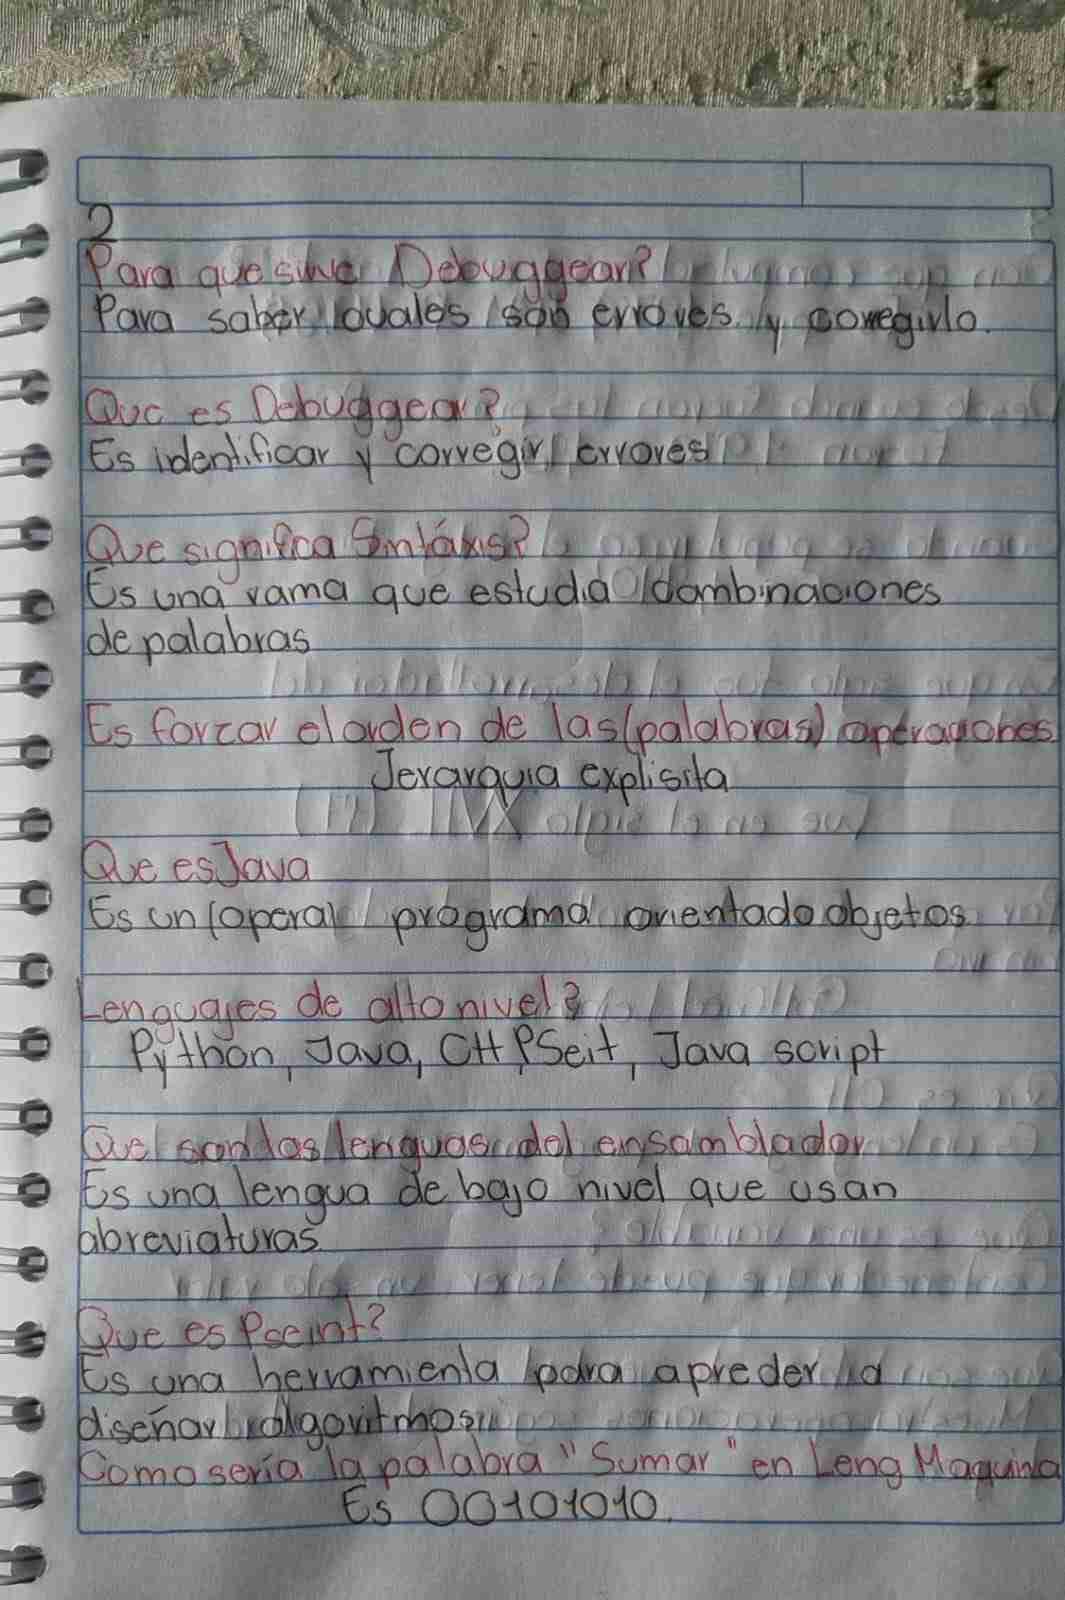 2
Para que sirve Debuggear?
Para saber cuales son errores y corregirlo.
Que es Debuggear?
Es identificar y corregir errores
Que significa Sintáxis?
Es una rama que estudia combinaciones
de palabras
Es forzar el orden de las (palabras) operaciones
Jerarquia explisita
Que es Java
Es un (opera) programa orientado objetos
Lenguajes de alto nivel?
Python, Java, C++, PSeit, Java script
Que son las lenguas del ensamblador
Es una lengua de bajo nivel que usan
abreviaturas
Que es Pseint?
Es una herramienta para apreder a
diseñar algoritmos
Como sería la palabra "Sumar" en Leng Maquina
Es 00101010.